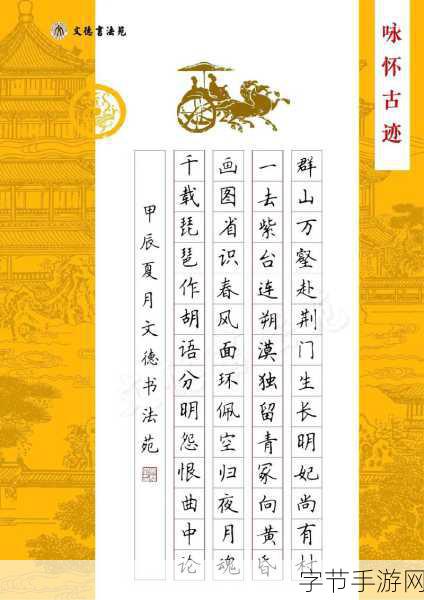 文德书法苑
咏怀古迹
群山万壑赴荆门生长明妃尚有村
一去紫台连朔漠独留青冢向黄昏
画图省识春风面环佩空归夜月魂
千载琵琶作胡语分明怨恨曲中论
甲辰夏月文德书法苑
字节手游网